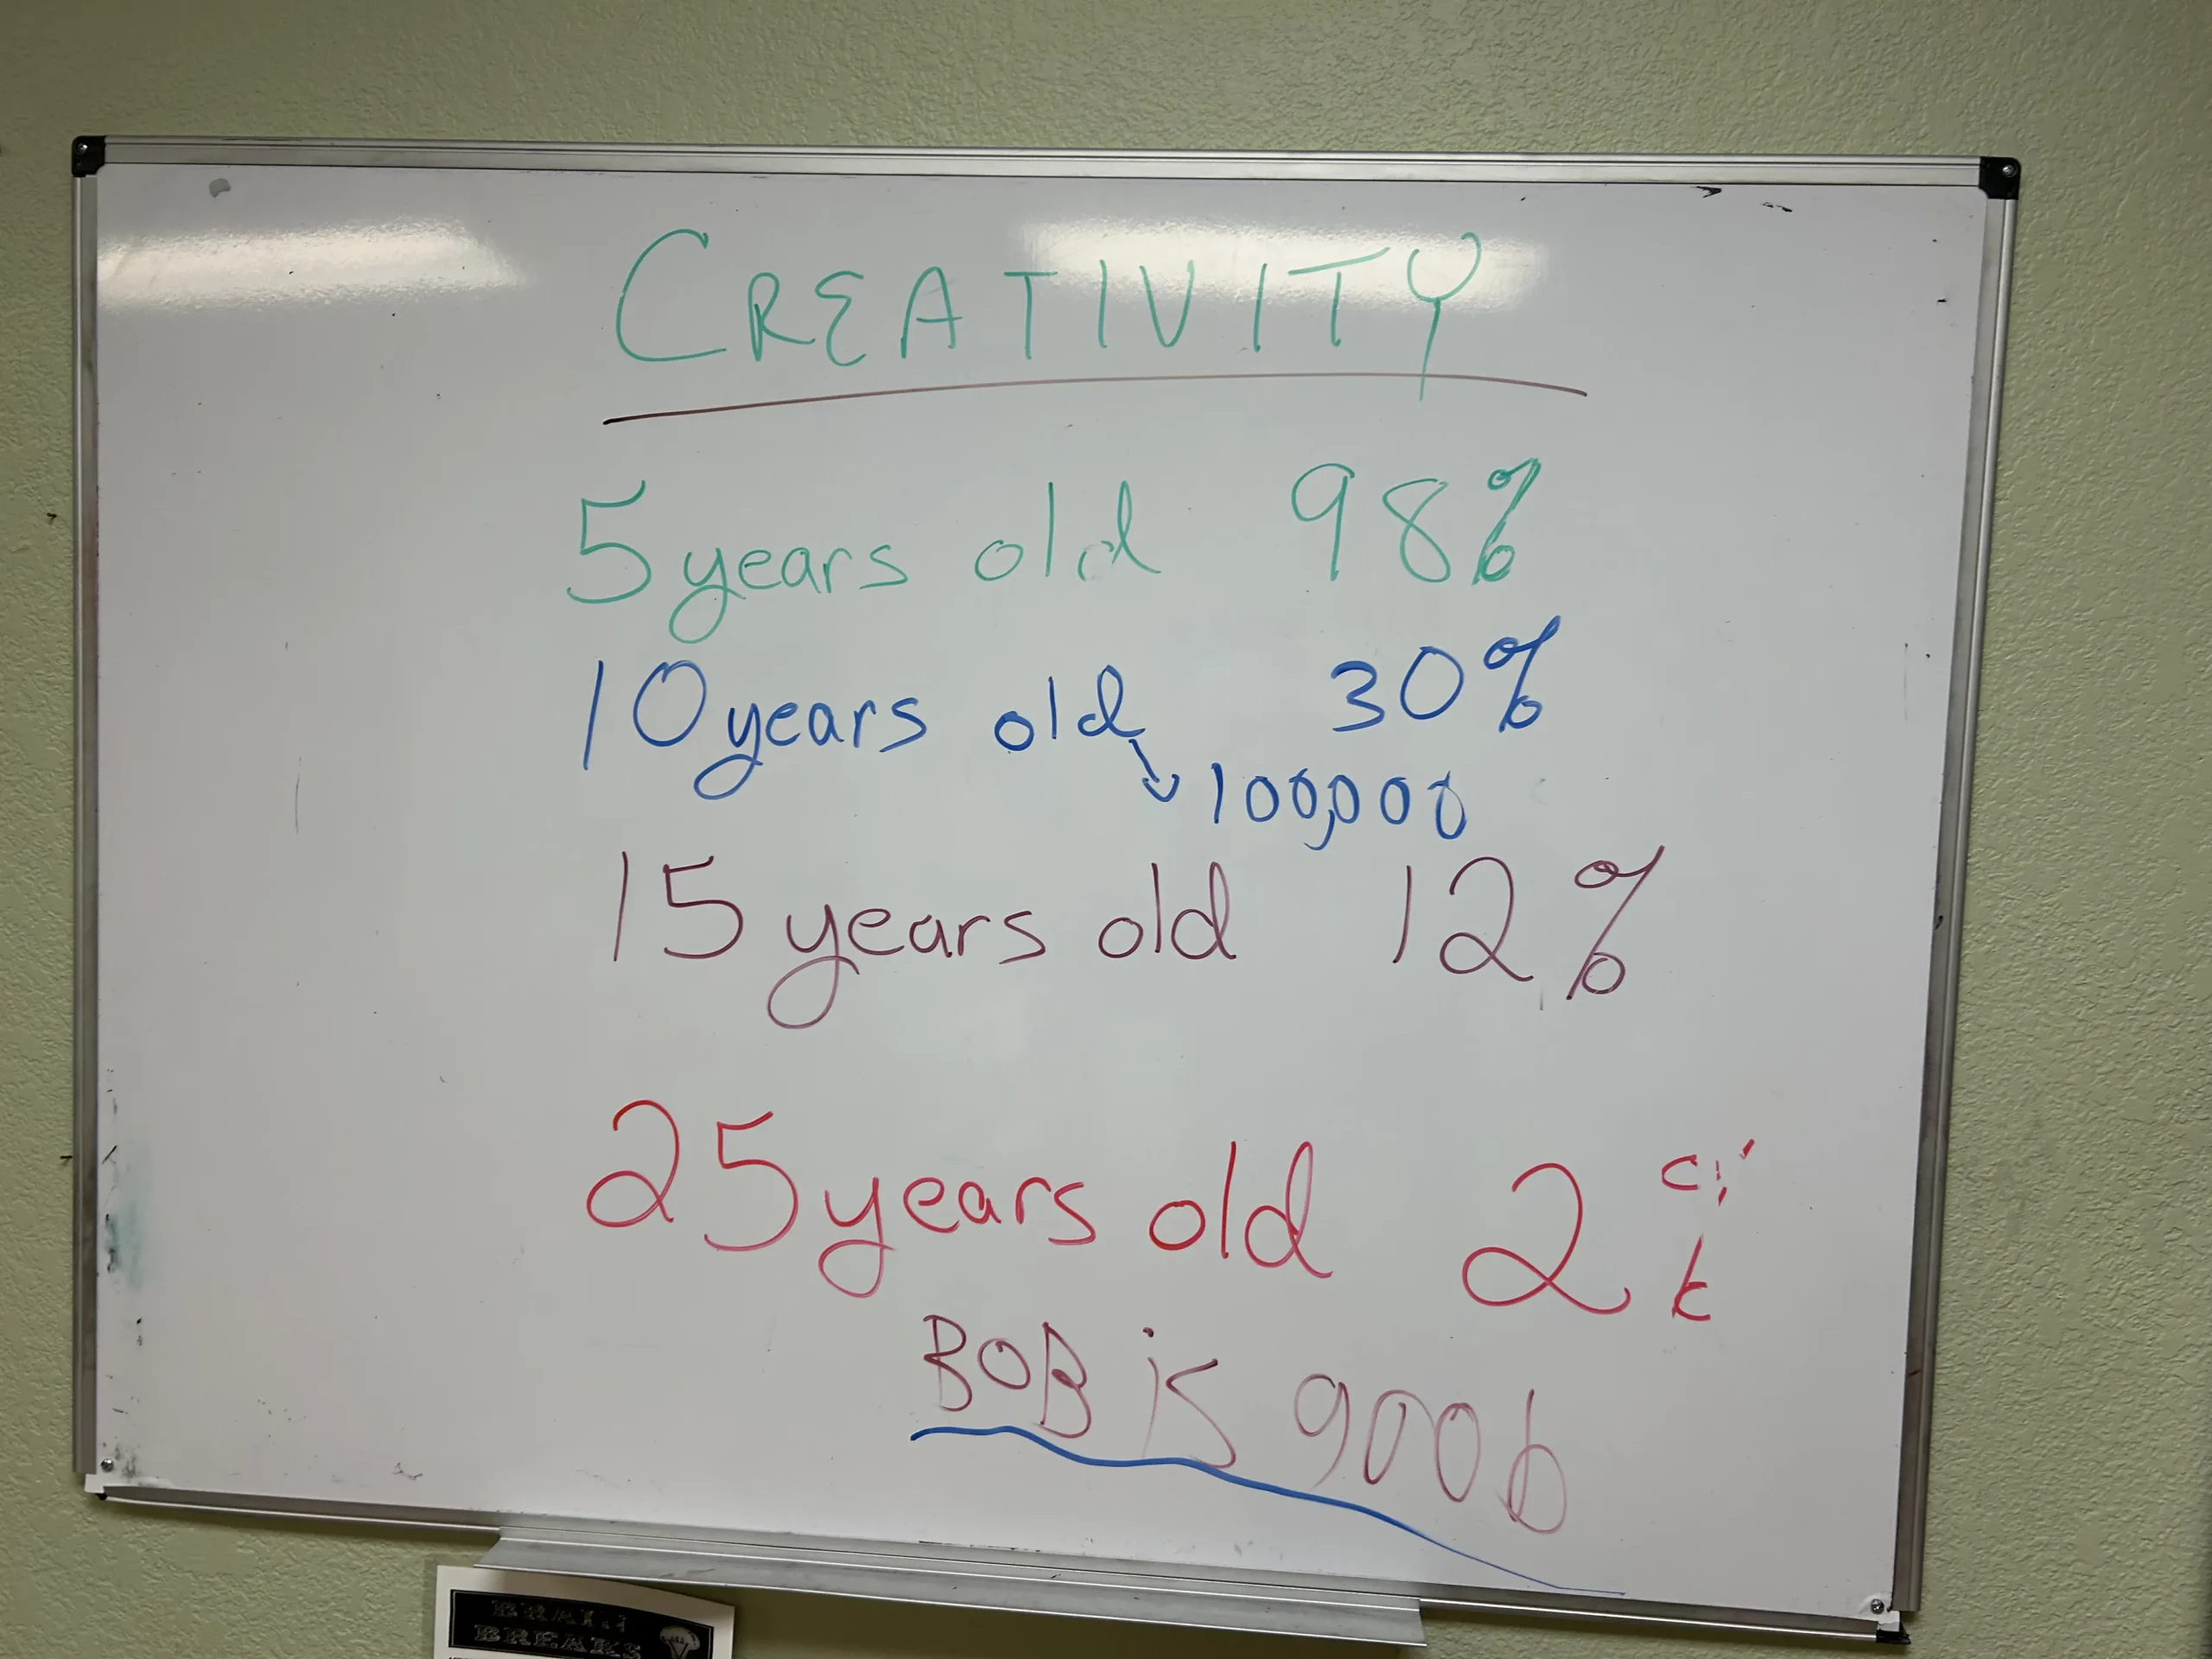 CREATIVITY
5 years old 98%
10 years old 30%
100,000
15 years old 12%
25 years old 2
BOB is goob
BRAIN
BREAKS